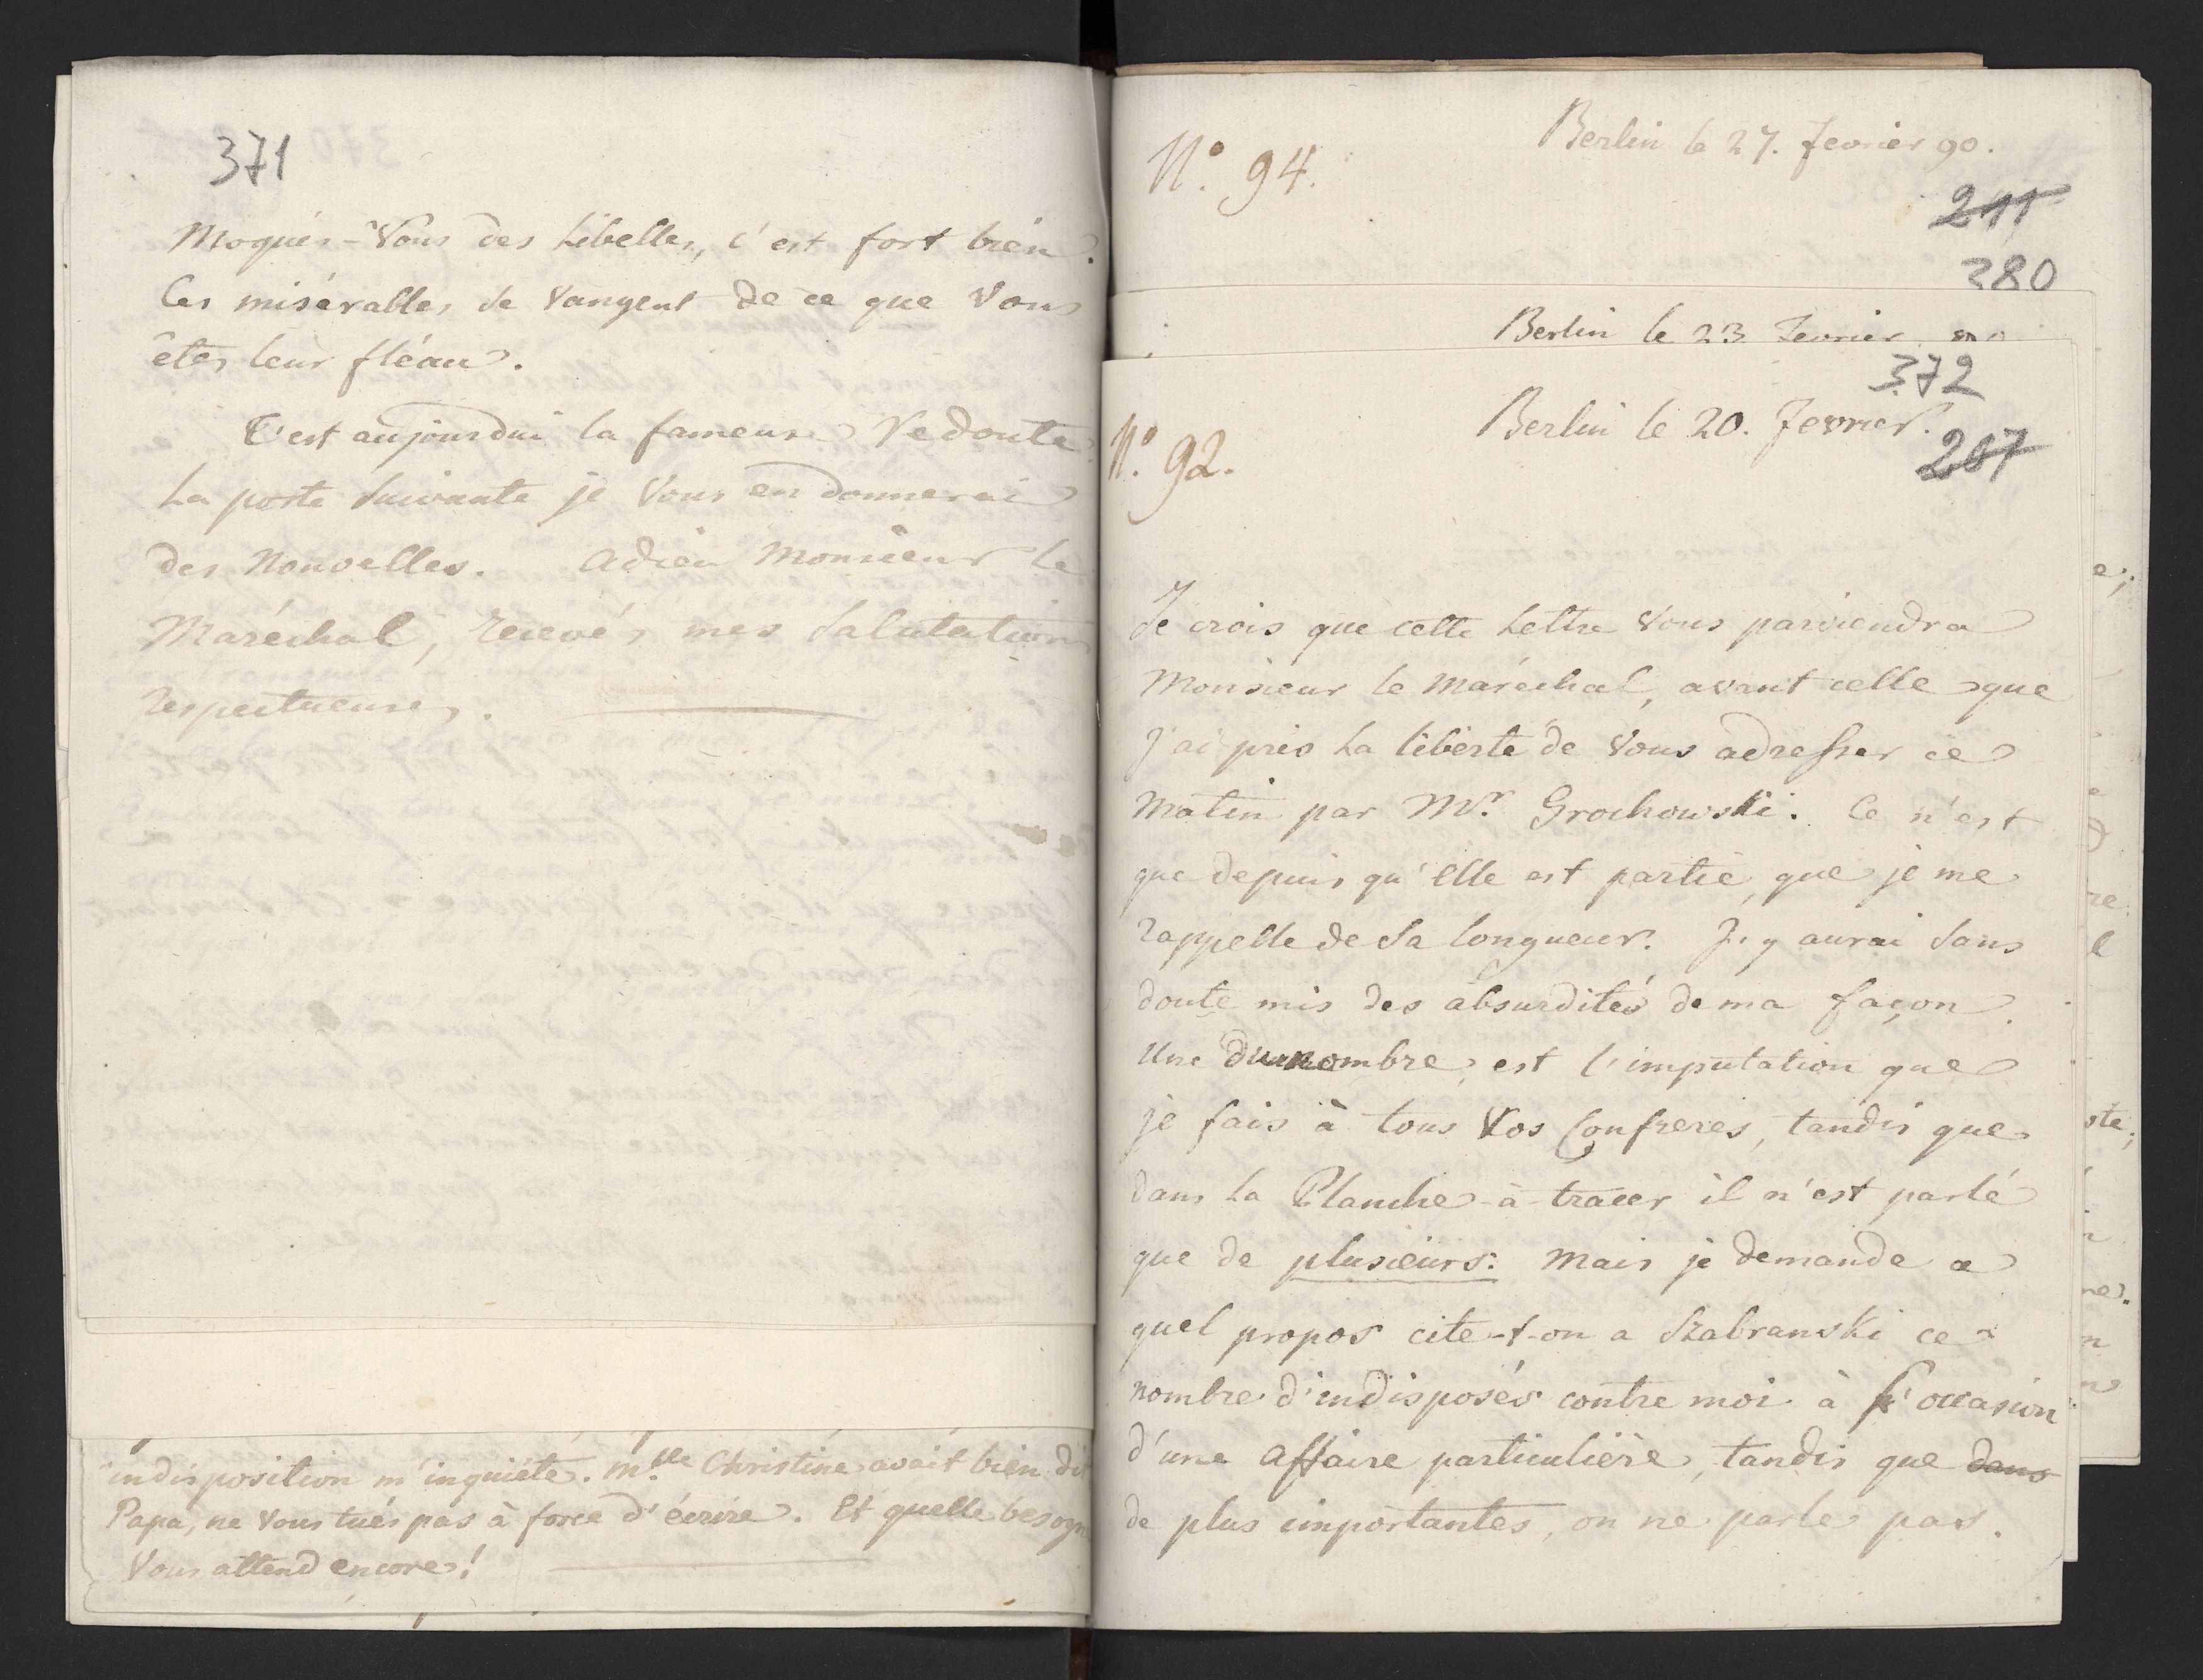 371
Moqués-Vous des Libelles, c'est fort bien.
Ces misérables se vangent de ce que Vous
êtes leur fléau.
C'est aujourdui la fameuse Redoute
La poste suivante je Vous en donnerai
des Nouvelles. Adieu Monsieur le
Maréchal, recevés mes Salutations
respectueuses.
indisposition m'inquiéte. Mlle Christine avait bien dit
Papa, ne Vous tués pas à force d'écrire. Et quelle besogn
Vous attend encore!
No. 94.
Berlin le 27. fevrier 90.
211
380
Berlin le 23 fevrier 90
372
Berlin le 20. fevrier.
267
No. 92.
Je crois que cette Lettre Vous parviendra
Monsieur le Maréchal, avant celle que
j'ai pris La liberté de Vous adresser ce
Matin par Mr. Grochowski. Ce n'est
que depuis qu'elle est partie, que je me
rappelle de Sa longueur. J'y aurai Sans
doute mis des absurdités de ma façon.
Une du nombre, est l'imputation que
je fais à tous Vos Confreres, tandis que
dans La Planche-à-tracer il n'est parlé
que de plusieurs: Mais je demande a
quel propos cite-t-on a Szabranski ce
nombre d'indisposés contre moi à l'occasion
d'une affaire particulière, tandis que dans
de plus importantes, on ne parle pas.